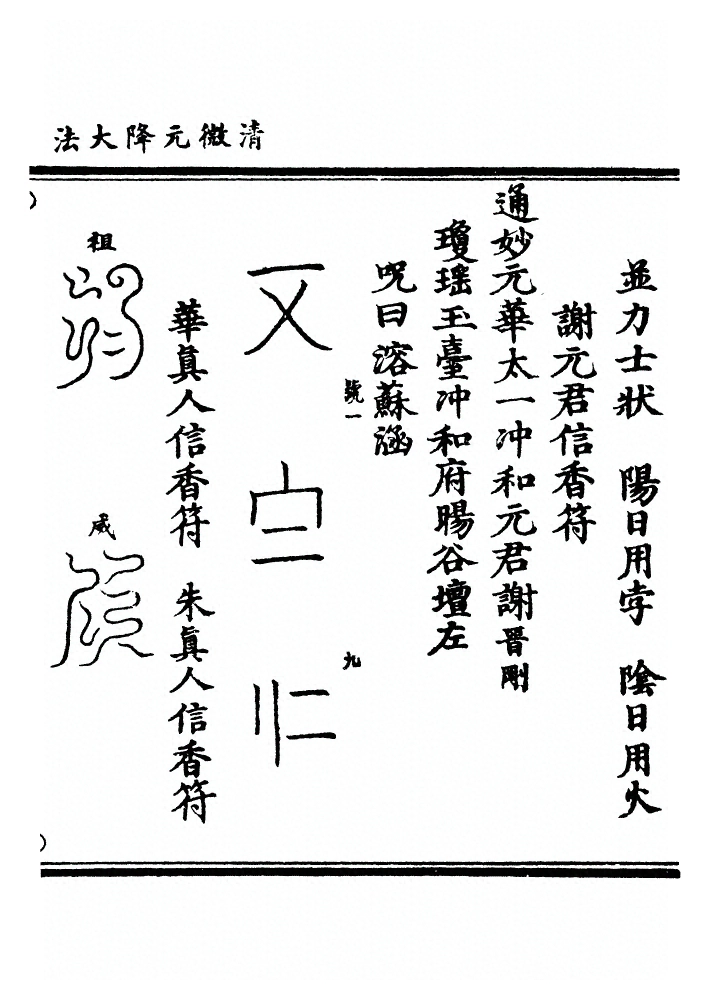 清微元降大法
並力士狀　陽日用孛　陰日用火
謝元君信香符
通妙元華太一冲和元君謝晋剛
瓊瑤玉臺冲和府暘谷壇左
呪曰溶蘇涵
號一
九
華真人信香符　朱真人信香符
祖
威